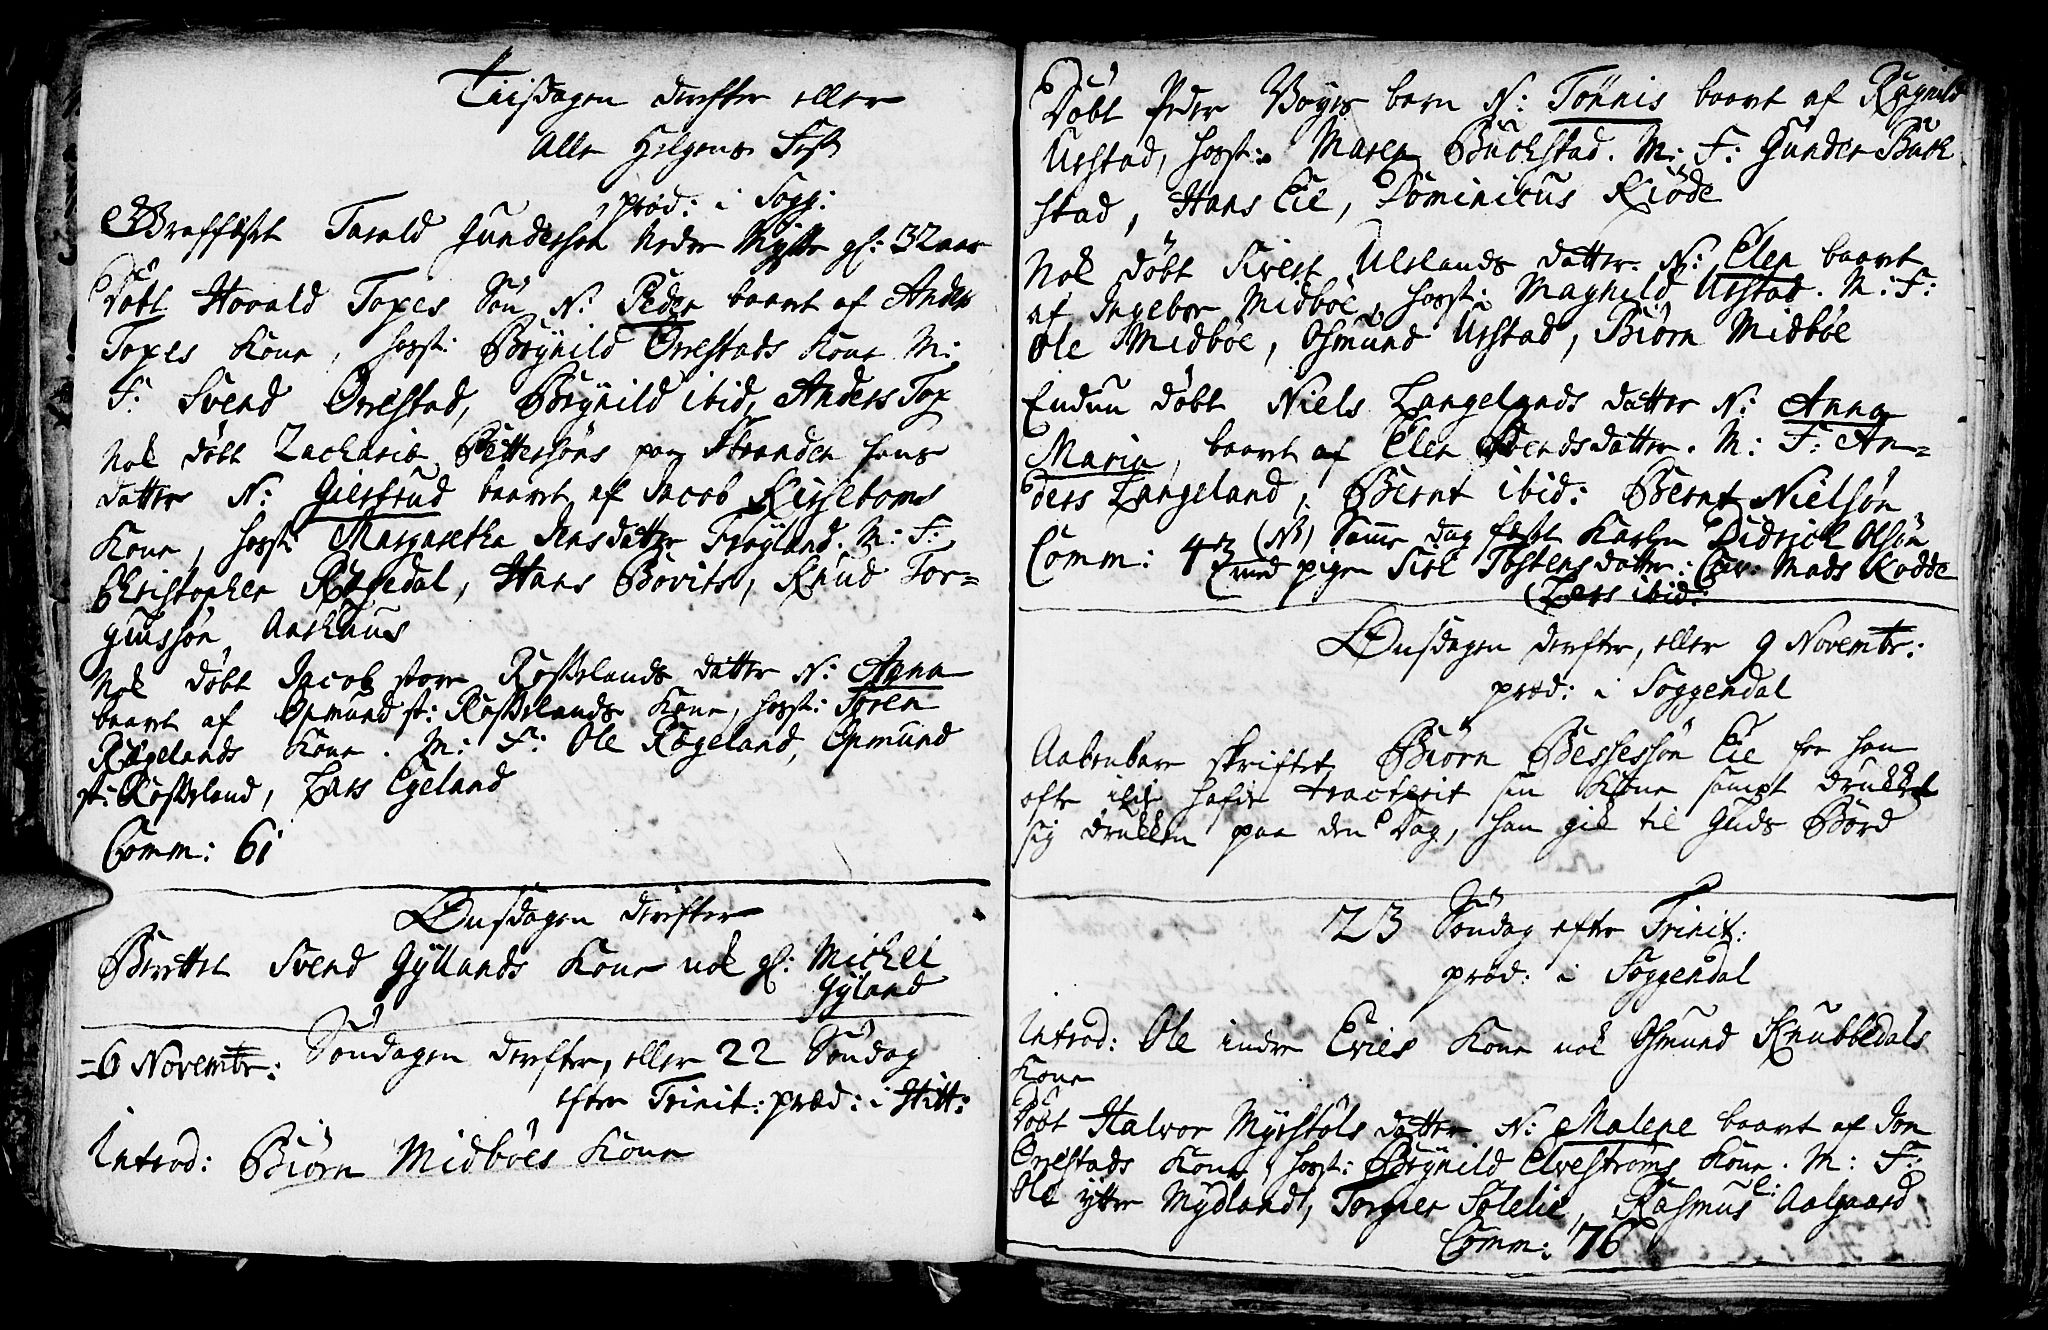 Tiisdagen derefter eller
Alle Helgens Fest
præd: i Sogg:
Graffæstet Tarald Gundersøn Nedre Mysse gl: 32 aar
Døbt Hovald Topes Søn N: Peder baaret af Anders
Topes Kone, hosst: Brÿnild Ørrestads Kone M:
F: Svend Ørrestad, Brÿnild ibid, Anders Top
Nok døbt Zacharie Pettersøns paa Stranden hans
datter N: Giertrud baaret af Jacob Kirseboms
Kone, hosst: Margaretha Jensdatter Frøÿland. M: F:
Christopher Rægedal, Hans Bovits, Knud Tor=
giussøn Aarhaus
Nok døbt Jacob store Rosseland datter N: Anna
baaret af Opmund st: Rosselands Kone, hosst: Søren
Rægelands Kone. M: F: Ole Rægeland, Opmund
st: Rosseland, Lars Egeland
Comm: 61
Onsdagen derefter
Berettet Svend Gÿllands Kone nok gl: Michel
Gÿland
=6 Novembr: Søndagen derefter, eller 22 Søndag
efter Trinit: præd: i Hitt:
Introd: Biørn Midbøes Kone
Døbt Peder Boyes barn N: Tønnis baaret af Ragnild
Urstad, hosst: Maren Buchstad. M: F: Gunder Buch
stad, Hans Eie, Dominicus Kiøde
Nok døbt Sivert Ulslands datter N: Elen baaret
af Ingebor Midbøe, hosst: Magnild Urstad. M: F:
Ole Midbøe, Osmund Urstad, Biørn Midbøe
Endnu døbt Niels Langelands datter N: Anna
Maria, baaret af Elen Bendsdatter. M: F: An=
ders Langeland, Bernt ibid: Bernt Nielsøn
Comm: 43 (NB) Samme dag fæst Karlen Didrich Olsøn
med pigen Siri Tostensdatter: Cav: Mads Rodde
Lars ibid:
Onsdagen derefter, eller 9 Novembr:
præd: i Soggendal
Aabenbare skriftet Biørn Bessessøn Eie for han
ofte ilde hafde tracterit sin Kone sampt drukket
sig drukken paa den Dag, han gik til Guds Bord
23 Søndag efter Trinit:
præd: i Soggendal
Introd: Ole indre Evies Kone nok Osmund Knubbedals
Kone
Døbt Halvor Myrstøls datter N: Malene baaret af Jon
Ørrestads Kone, hosst: Brÿnild Elvestrøms Kone. M: F:
Ole ÿttre Mÿdlandt, Torgier Solelie, Rasmus Aalgaard
Comm: 76